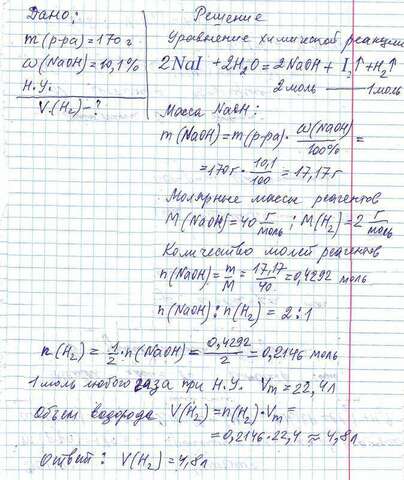 Дано:
m(р-ра)=170г
ω(NaOH)=10,1%
Н.У.
V(H₂)-?
Решение
Уравнение химической реакции
2NaI + 2H₂O = 2NaOH + I₂↑ + H₂↑
2моль — 1моль
Масса NaOH:
m(NaOH)=m(р-ра)·ω(NaOH)/100% =
=170г·10,1/100 = 17,17г
Молярные массы реагентов
M(NaOH)=40 г/моль; M(H₂)=2 г/моль
Количество молей реагентов
n(NaOH)=m/M=17,17/40=0,4292 моль
n(NaOH):n(H₂) = 2:1
n(H₂) = 1/2·n(NaOH)=0,4292/2=0,2146 моль
1 моль любого газа при Н.У. Vm=22,4л
Объем водорода V(H₂)=n(H₂)·Vm=
=0,2146·22,4 ≈ 4,8л
Ответ: V(H₂)=4,8л